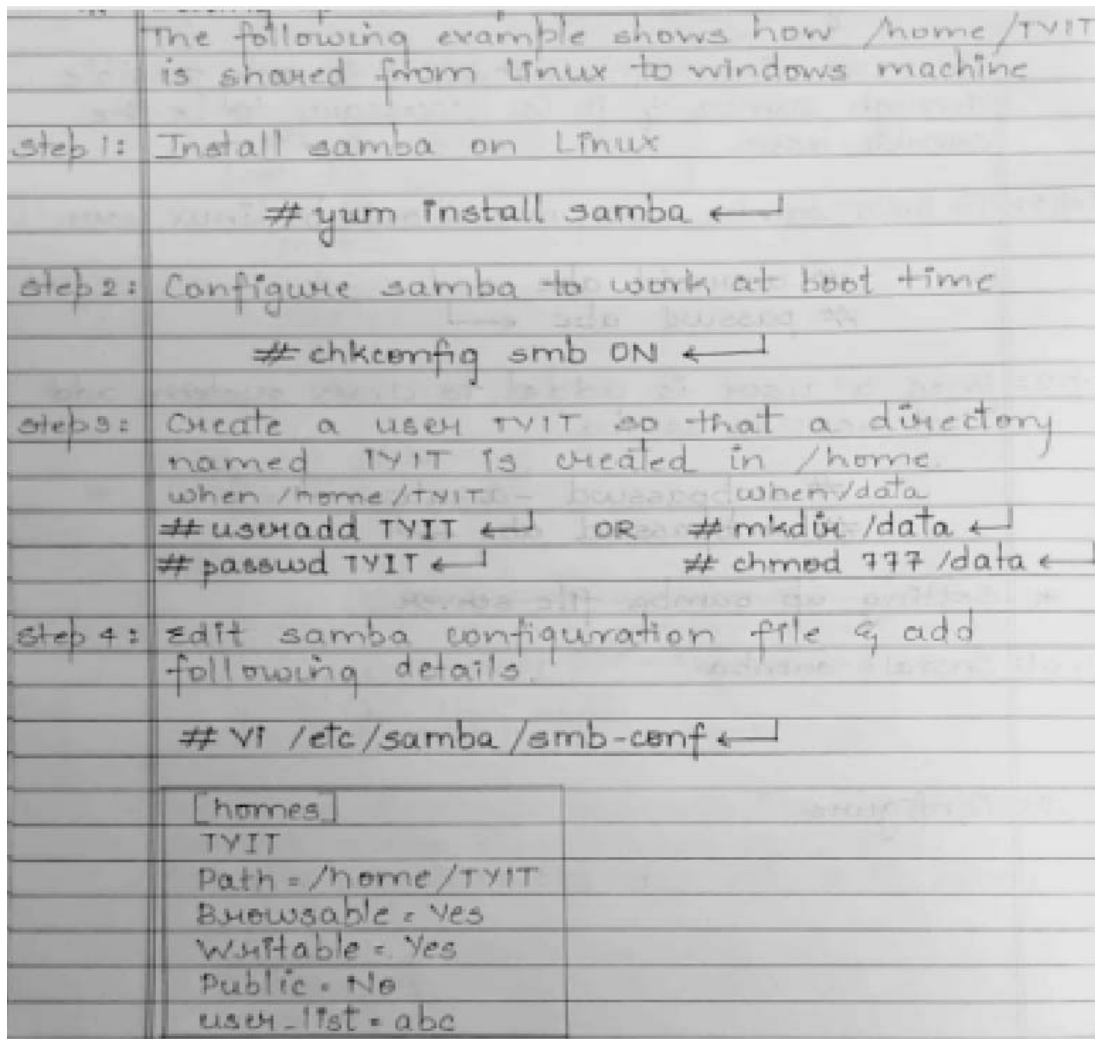 The following example shows how /home/TYIT
is shared from Linux to windows machine
step 1: Install samba on Linux
# yum install samba ↵
step 2: Configure samba to work at boot time
# chkconfig smb ON ↵
step 3: Create a user TYIT so that a directory
named TYIT is created in /home.
when /home/TYIT when /data
# useradd TYIT ↵ OR # mkdir /data ↵
# passwd TYIT ↵ # chmod 777 /data ↵
step 4: Edit samba configuration file & add
following details.
# Vi /etc/samba/smb-conf ↵
[homes]
TYIT
Path = /home/TYIT
Browsable = Yes
Writable = Yes
Public = No
user_list = abc